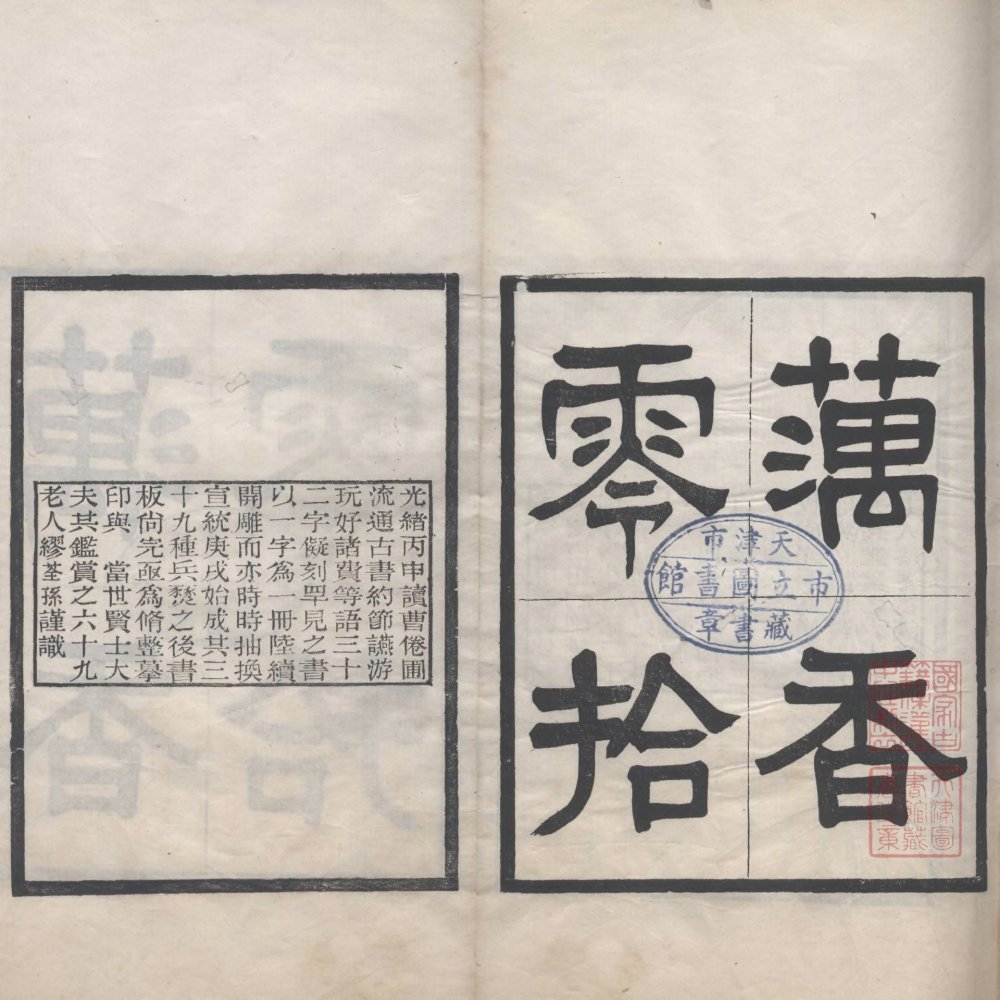 蕅香
零拾
天津市
市立圖書館
藏書章
天津圖
書館藏
光緒丙申讀曹倦圃
流通古書約節讌游
玩好諸費等語三十
二字儗刻罕見之書
以一字為一冊陸續
開雕而亦時時抽換
宣統庚戌始成其三
十九種兵燹之後書
板尚完亟為脩整摹
印與 當世賢士大
夫其鑑賞之六十九
老人繆荃孫謹識